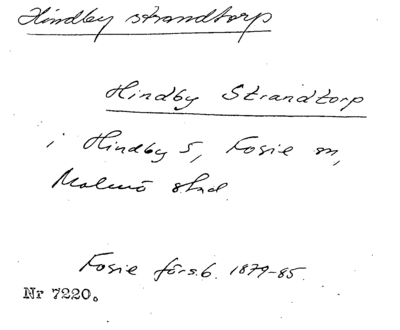 Hindby strandtorp
Hindby Strandtorp
i Hindby 5, Fosie sn,
Malmö stad.
Fosie förs.b. 1879-85.
Nr 7220.